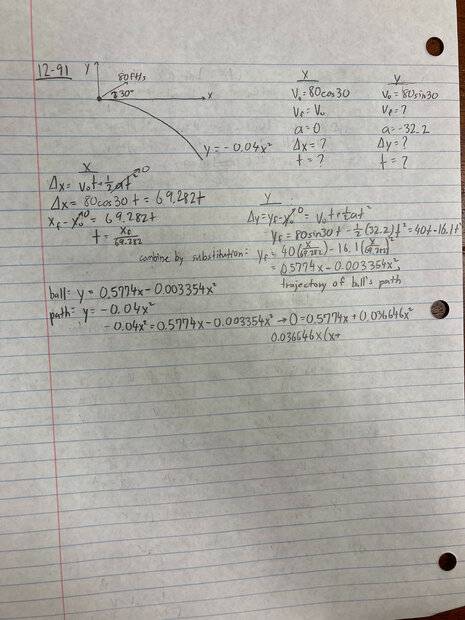 12-91
y
80ft/s
30°
x
y = -0.04x²
x
v₀ = 80cos30
v_f = v₀
a = 0
Δx = ?
t = ?
y
v₀ = 80sin30
v_f = ?
a = -32.2
Δy = ?
t = ?
x
Δx = v₀t + ½at² 0
Δx = 80cos30t = 69.282t
x_f - x₀ 0 = 69.282t
t = x_f/69.282
y
Δy = y_f - y₀ 0 = v₀t + ½at²
y_f = 80sin30t - ½(32.2)t² = 40t - 16.1t²
combine by substitution: y_f = 40(x/69.282) - 16.1(x/69.282)²
= 0.5774x - 0.003354x²,
trajectory of ball's path
ball: y = 0.5774x - 0.003354x²
path: y = -0.04x²
-0.04x² = 0.5774x - 0.003354x² → 0 = 0.5774x + 0.036646x²
0.036646x(x+